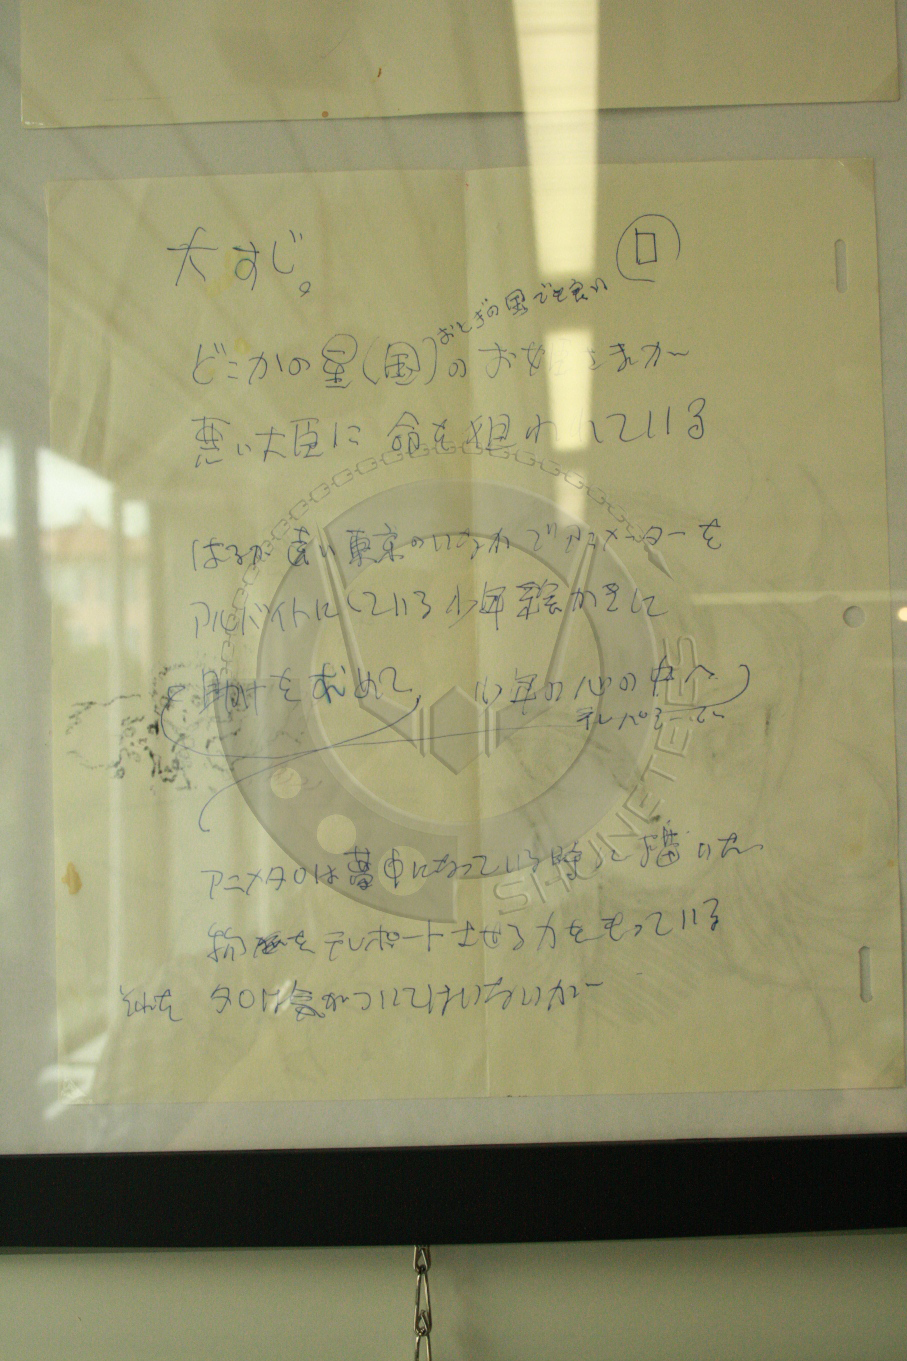 大すじ。 ロ
おとぎの国でも良い
どこかの星(国)のお姫さまが
悪い大臣に命を狙われている
はるか遠い東京のいなかでアニメーターを
アルバイトにしている少年
助けを求めて 少年の心の中へ
テレパシーで
アニメタロは夢中になっている時 描いた
物 をテレポートさせる力をもっている
それを タロは気がついてはいないが
SHUNETEES